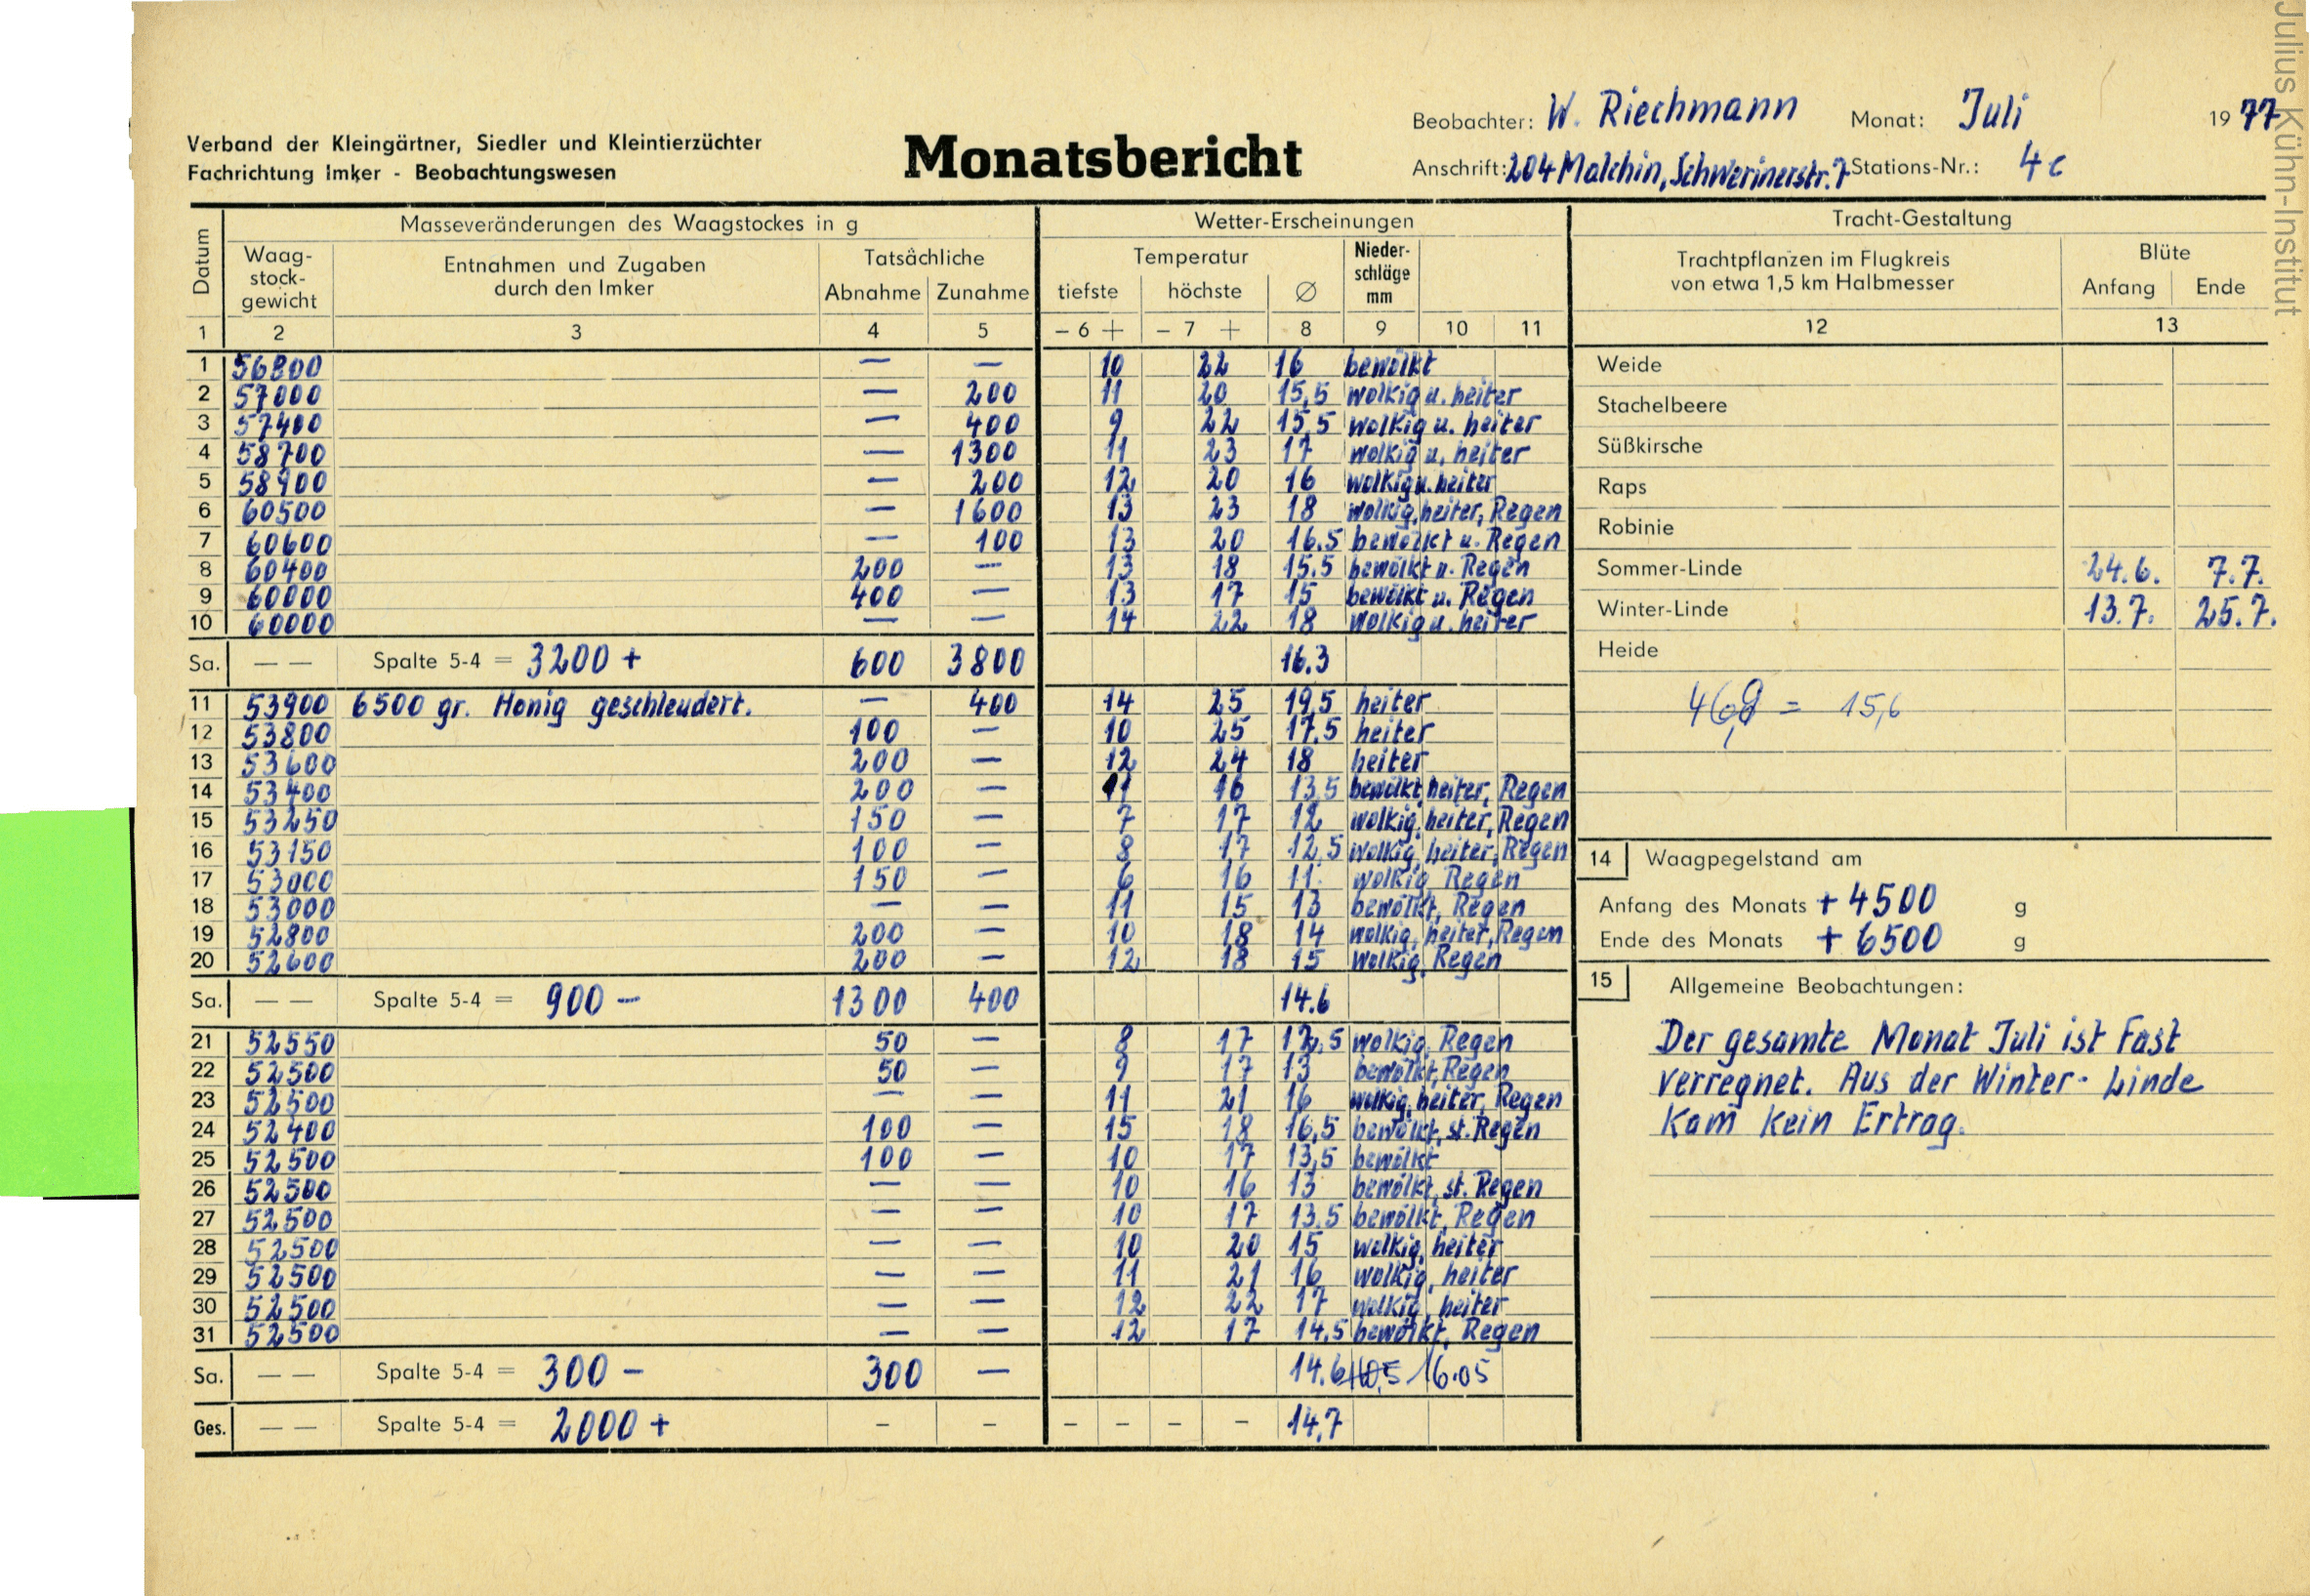 Julius Kühn-Institut
Verband der Kleingärtner, Siedler und Kleintierzüchter
Fachrichtung Imker - Beobachtungswesen
Monatsbericht
Beobachter: W. Riechmann Monat: Juli 1977
Anschrift: 204 Malchin, Schwerinerstr. 7 Stations-Nr.: 4c
Datum
Masseveränderungen des Waagstockes in g
Waag-
stock-
gewicht
Entnahmen und Zugaben
durch den Imker
Tatsächliche
Abnahme Zunahme
Wetter-Erscheinungen
Temperatur
tiefste höchste Ø
Nieder-
schläge
mm
1 2 3 4 5 - 6 + - 7 + 8 9 10 11
1 56800 — — 10 22 16 bewölkt
2 57000 — 200 11 20 15,5 wolkig u. heiter
3 57400 — 400 9 22 15,5 wolkig u. heiter
4 58700 — 1300 11 23 17 wolkig u. heiter
5 58900 — 200 12 20 16 wolkig u. heiter
6 60500 — 1600 13 23 18 wolkig, heiter, Regen
7 60600 — 100 13 20 16.5 bewölkt u. Regen
8 60400 200 — 13 18 15.5 bewölkt u. Regen
9 60000 400 — 13 17 15 bewölkt u. Regen
10 60000 — — 14 22 18 wolkig u. heiter
Sa. — — Spalte 5-4 = 3200 + 600 3800 16.3
11 53900 6500 gr. Honig geschleudert. — 400 14 25 19,5 heiter
12 53800 100 — 10 25 17.5 heiter
13 53600 200 — 12 24 18 heiter
14 53400 200 — 11 16 13,5 bewölkt, heiter, Regen
15 53250 150 — 7 17 12 wolkig, heiter, Regen
16 53150 100 — 8 17 12,5 wolkig, heiter, Regen
17 53000 150 — 6 16 11. wolkig, Regen
18 53000 — — 11 15 13 bewölkt, Regen
19 52800 200 — 10 18 14 wolkig, heiter, Regen
20 52600 200 — 12 18 15 wolkig, Regen
Sa. — — Spalte 5-4 = 900 - 1300 400 14.6
21 52550 50 — 8 17 12,5 wolkig, Regen
22 52500 50 — 9 17 13 bewölkt, Regen
23 52500 — — 11 21 16 wolkig, heiter, Regen
24 52400 100 — 15 18 16,5 bewölkt, st. Regen
25 52500 100 — 10 17 13,5 bewölkt
26 52500 — — 10 16 13 bewölkt, st. Regen
27 52500 — — 10 17 13.5 bewölkt, Regen
28 52500 — — 10 20 15 wolkig, heiter
29 52500 — — 11 21 16 wolkig, heiter
30 52500 — — 12 22 17 wolkig, heiter
31 52500 — — 12 17 14,5 bewölkt, Regen
Sa. — — Spalte 5-4 = 300 - 300 — 14.6 16.05
Ges. — — Spalte 5-4 = 2000 + - - - - - - 14,7
Tracht-Gestaltung
Trachtpflanzen im Flugkreis
von etwa 1,5 km Halbmesser
Blüte
Anfang Ende
12 13
Weide
Stachelbeere
Süßkirsche
Raps
Robinie
Sommer-Linde 24.6. 7.7.
Winter-Linde 13.7. 25.7.
Heide
= 15,6
14 Waagpegelstand am
Anfang des Monats + 4500 g
Ende des Monats + 6500 g
15 Allgemeine Beobachtungen:
Der gesamte Monat Juli ist fast
verregnet. Aus der Winter- Linde
kam kein Ertrag.